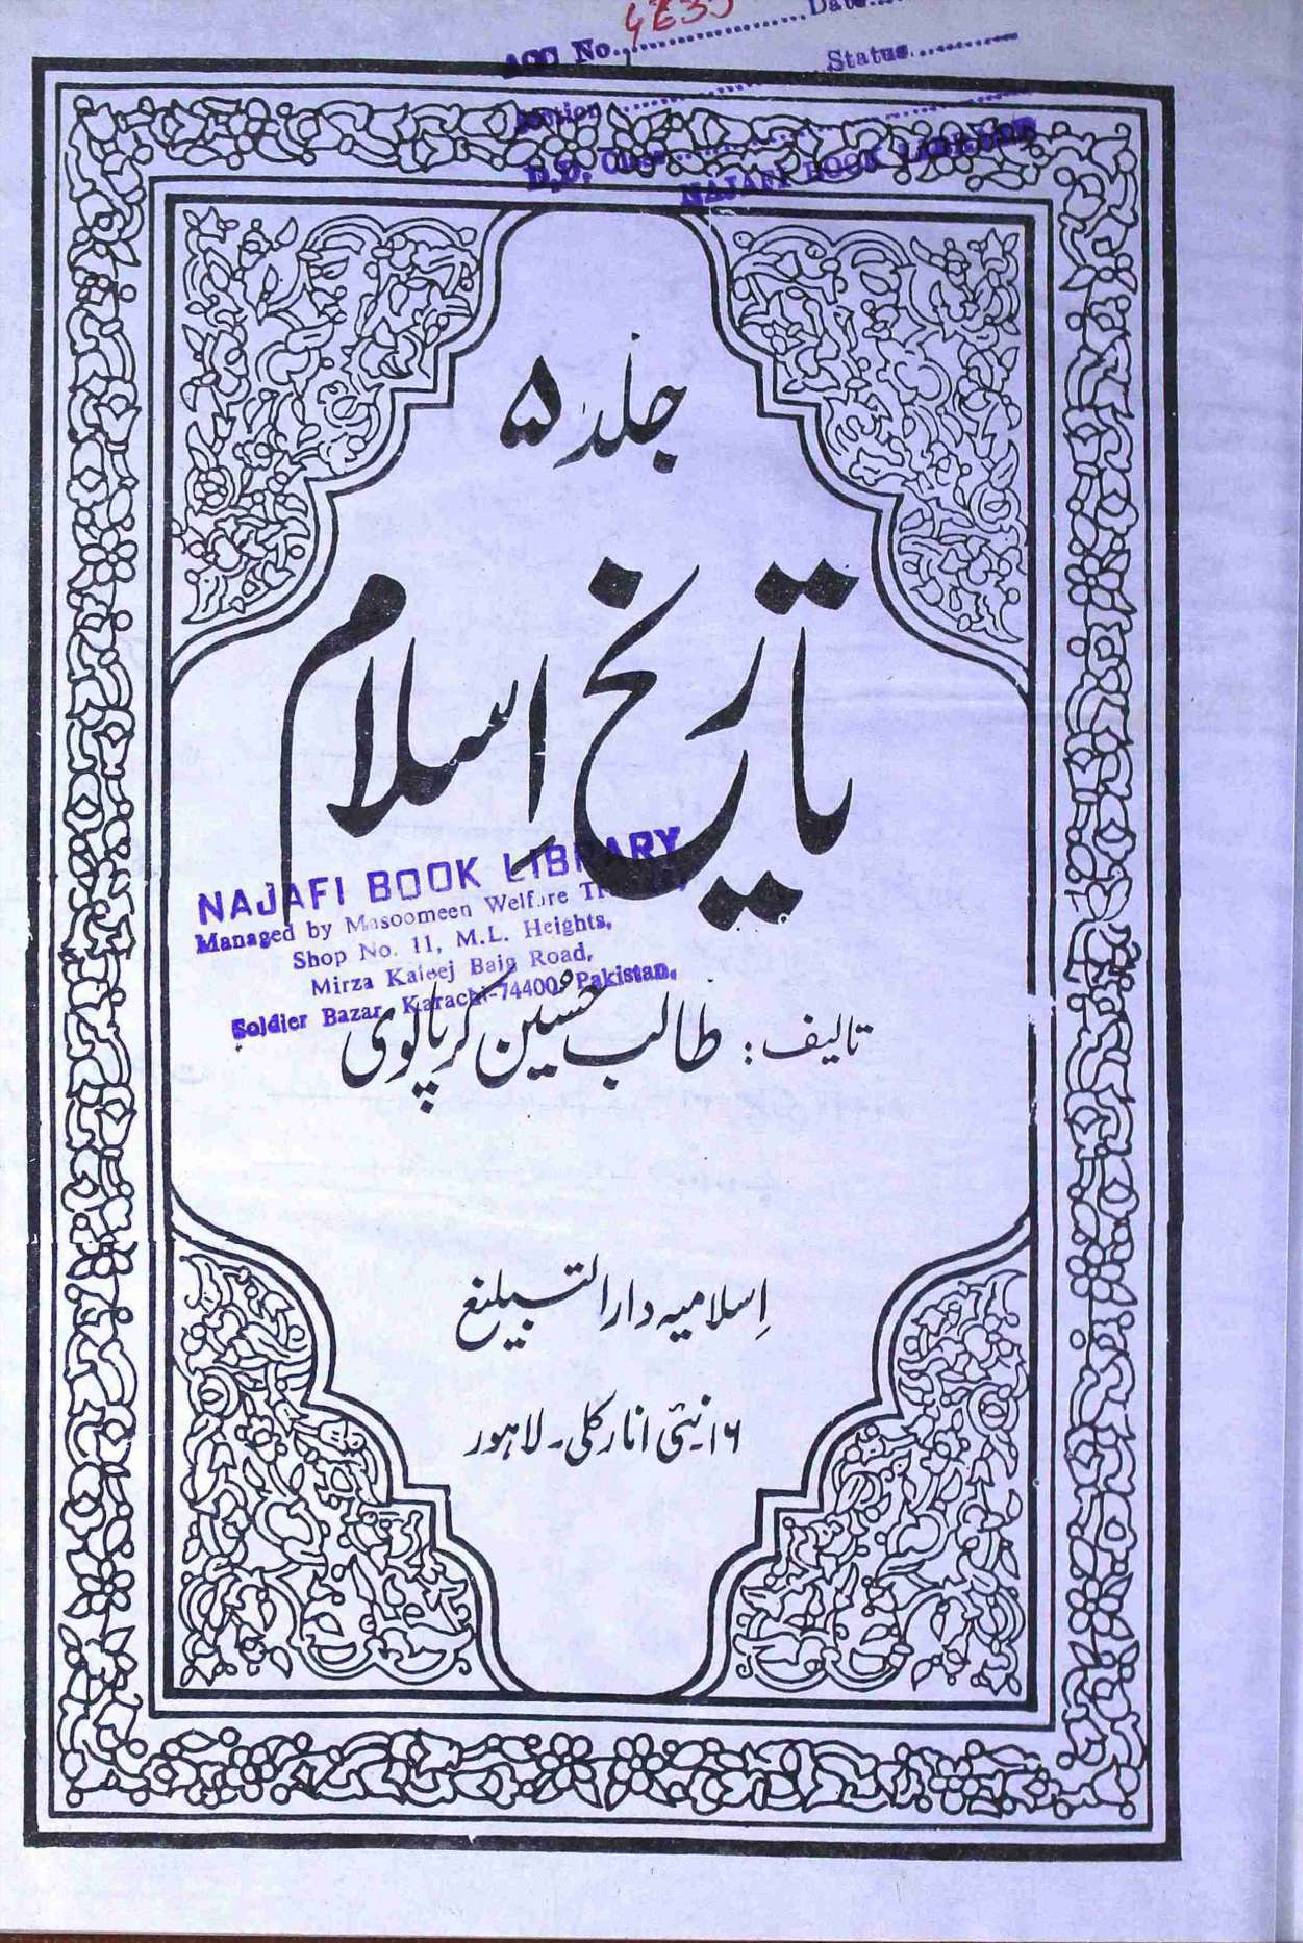 ACC No. Date
Status
Section
D.D. Class
NAJAFI BOOK LIBRARY
جلد ۵
تاریخ اسلام
NAJAFI BOOK LIBRARY
Managed by Masoomeen Welfare
Shop No. 11, M.L. Heights,
Mirza Kaleej Baig Road,
Soldier Bazar, Karachi-74400, Pakistan.
تالیف: طالب حسین کرپالوی
اسلامیہ دار التبلیغ
۱۶ نیئی انارکلی۔ لاہور